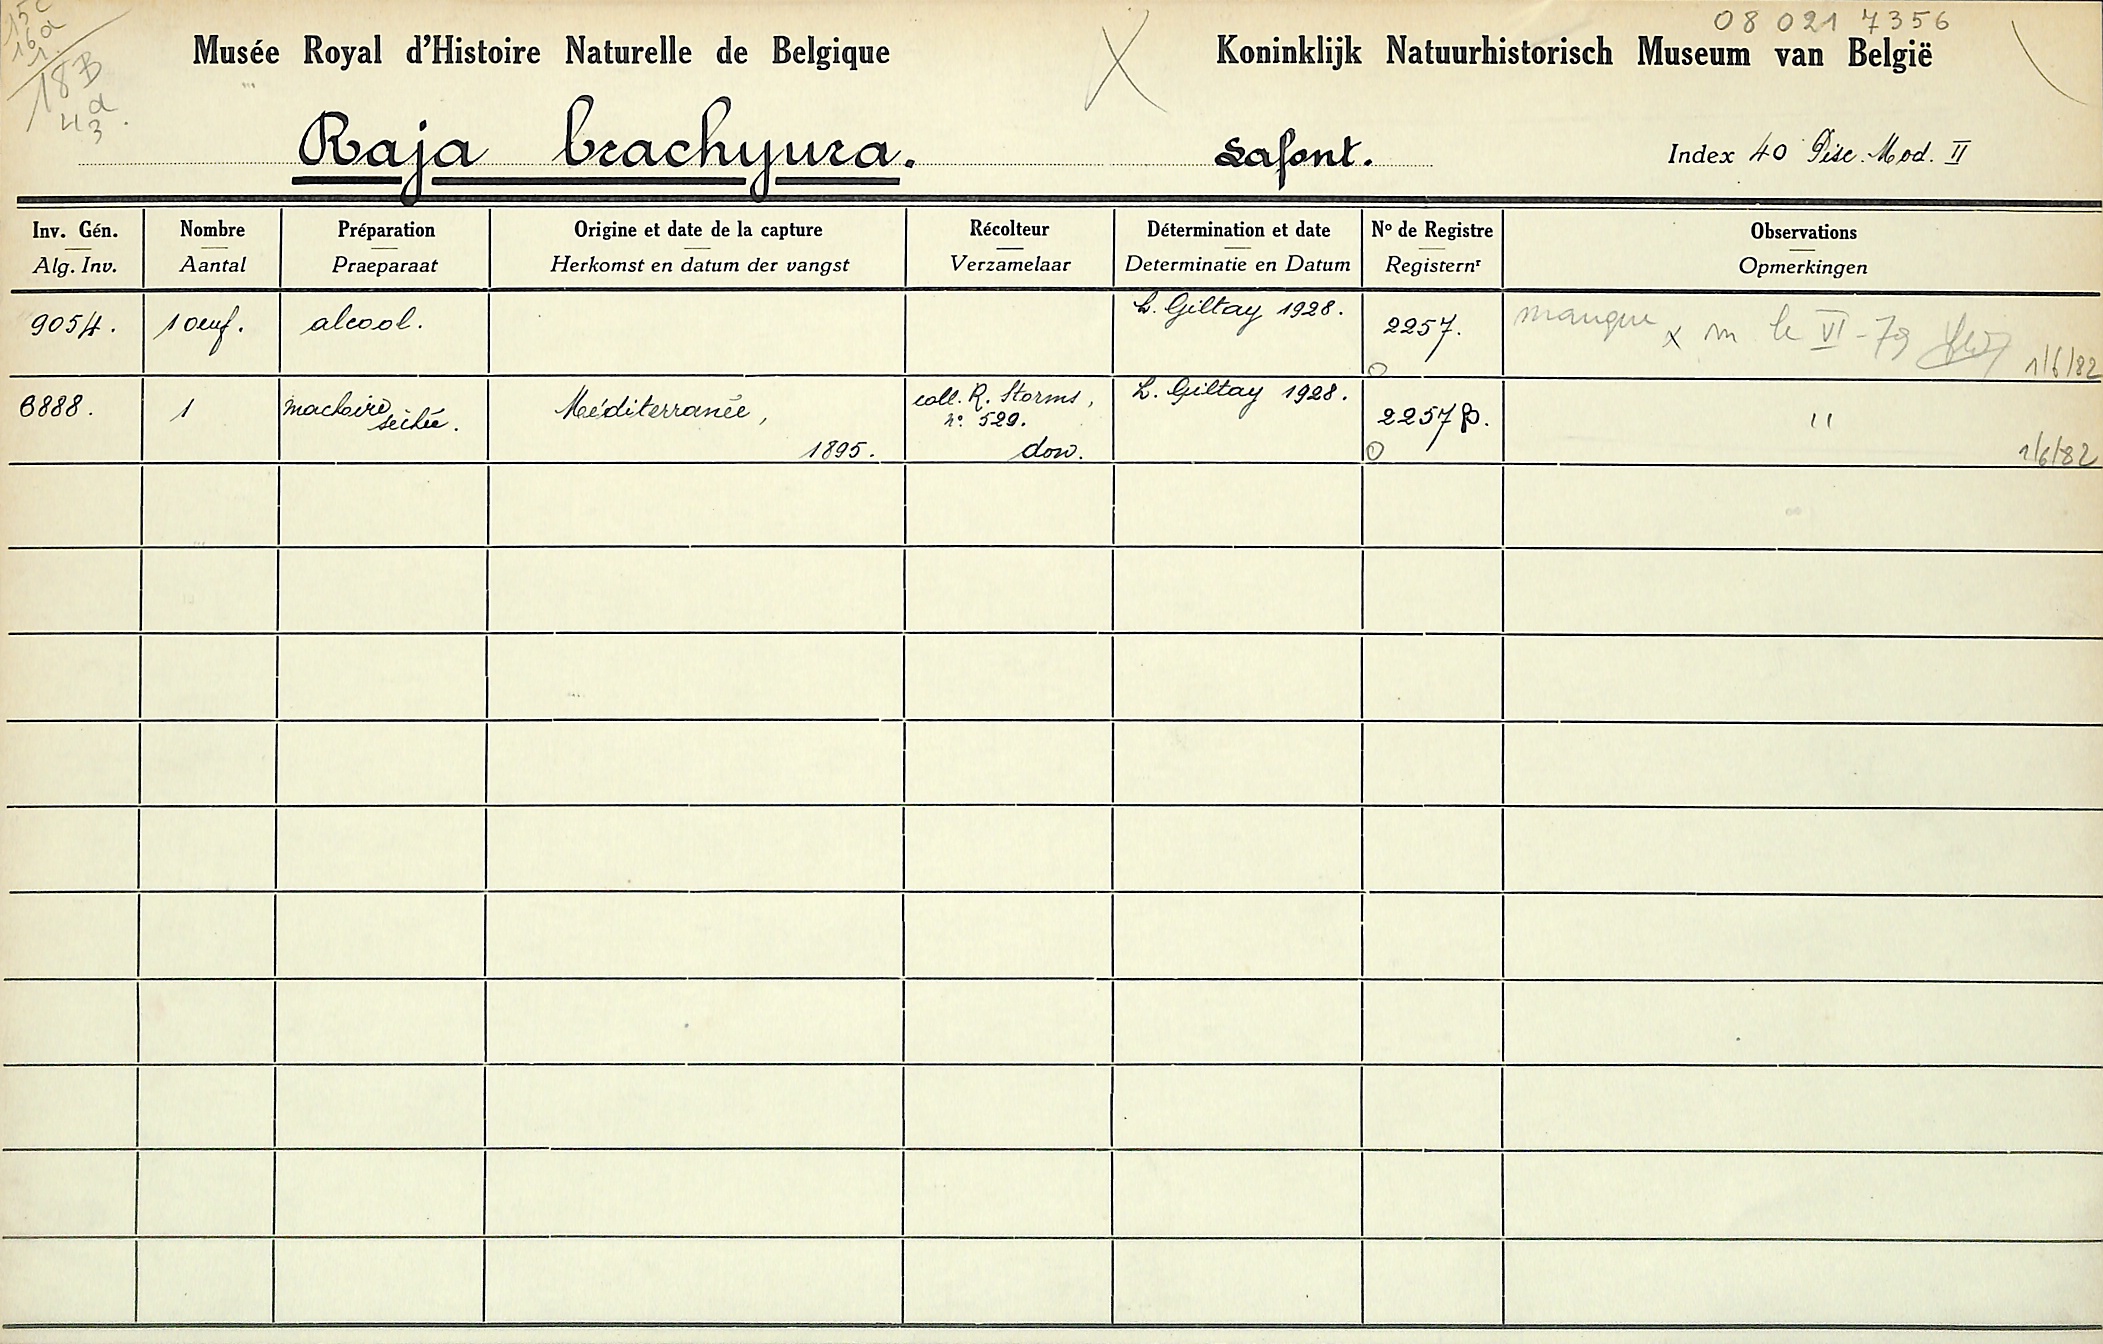 15c
16a
1.
18B
4a
3.
08 021 7356
Musée Royal d'Histoire Naturelle de Belgique
Koninklijk Natuurhistorisch Museum van België
Raja brachyura. Lafont. Index 40 Pisc. Mod. II
Inv. Gén. Nombre Préparation Origine et date de la capture Récolteur Détermination et date Nº de Registre Observations
Alg. Inv. Aantal Praeparaat Herkomst en datum der vangst Verzamelaar Determinatie en Datum Registernr Opmerkingen
9054. 1 oeuf. alcool. L. Giltay 1928. 2257. manque x m le VI-79 1/6/82
6888. 1 machoire séchée. Méditerranée, 1895. coll. R. Storms, nº 529. don. L. Giltay 1928. 2257 β. " 1/6/82